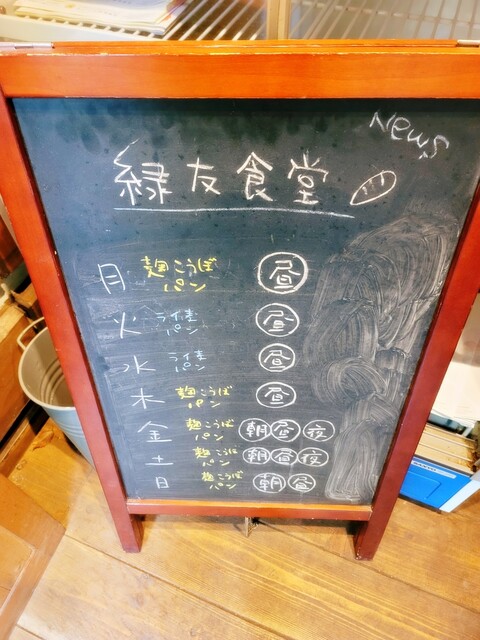 News
緑友食堂
月 麹こうぼパン 昼
火 ライ麦パン 昼
水 ライ麦パン 昼
木 麹こうぼパン 昼
金 麹こうぼパン 朝昼夜
土 麹こうぼパン 朝昼夜
日 麹こうぼパン 朝昼